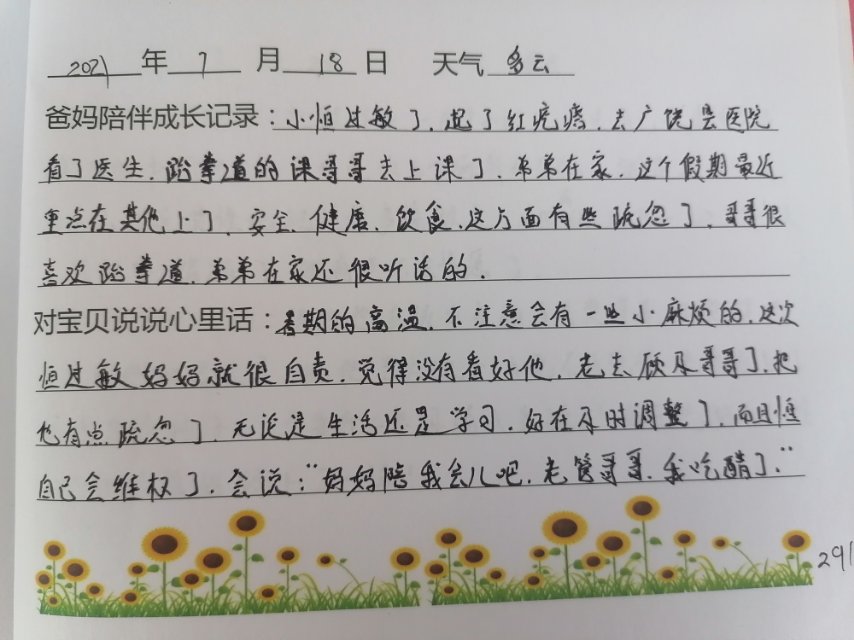 2021年7月18日 天气 多云
爸妈陪伴成长记录：小恒过敏了，起了红疙瘩，去广饶县医院
看了医生，跆拳道的课哥哥去上课了，弟弟在家，这个假期最近
重点在其他上了，安全、健康、饮食、这方面有些疏忽了，哥哥很
喜欢跆拳道，弟弟在家还很听话的．
对宝贝说说心里话：暑期的高温，不注意会有一些小麻烦的，这次
恒过敏妈妈就很自责，觉得没有看好他，老去顾及哥哥了，把
他有点疏忽了，无论是生活还是学习，好在及时调整了，而且恒
自己会维权了，会说：“妈妈陪我会儿吧，老管哥哥，我吃醋了，”
291